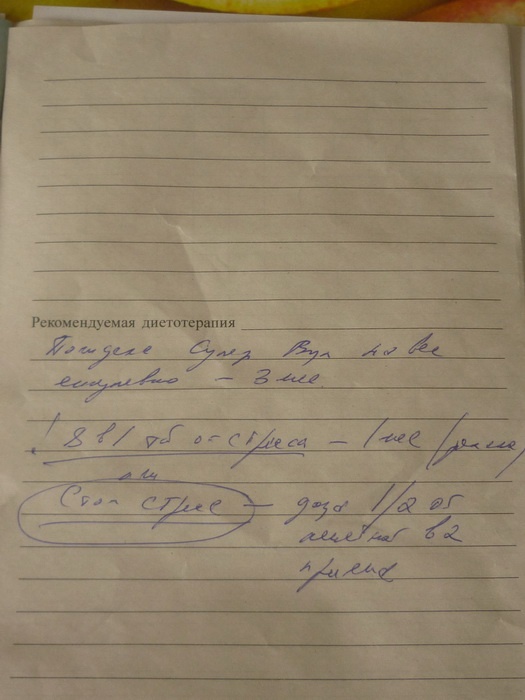 Рекомендуемая диетотерапия
Супер на вес
ежедневно - 3 мес.
! 8 в 1 тб от стресса - 1 мес
или
Стоп стресс - доза 1/2 от
лечебной в 2
приема